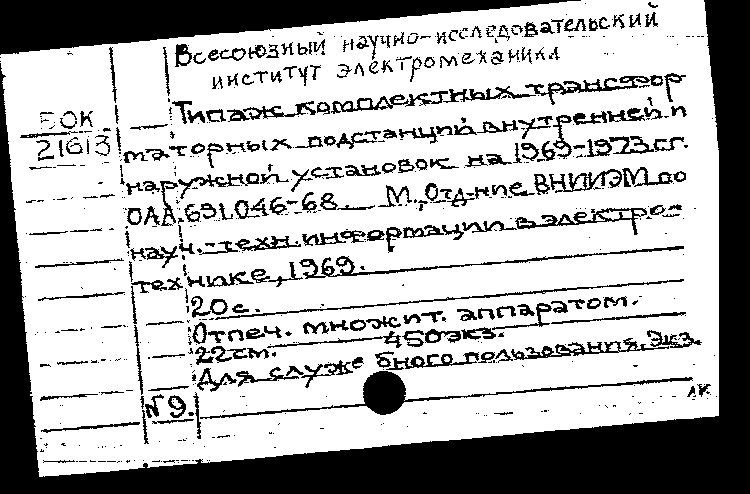 Всесоюзный научно-исследовательский
институт электромеханики
БОК
21613
Типаж комплектных трансфор
маторных подстанций внутренней и
наружной установок на 1969-1973 гг.
ОАА.691.046-68. М., Отд-ние ВНИИЭМ по
науч.-техн. информации в электро-
технике, 1969.
20 с.
Отпеч. множит. аппаратом.
22 см. 450 экз.
Для служебного пользования. Экз.
N 9.
ЛК